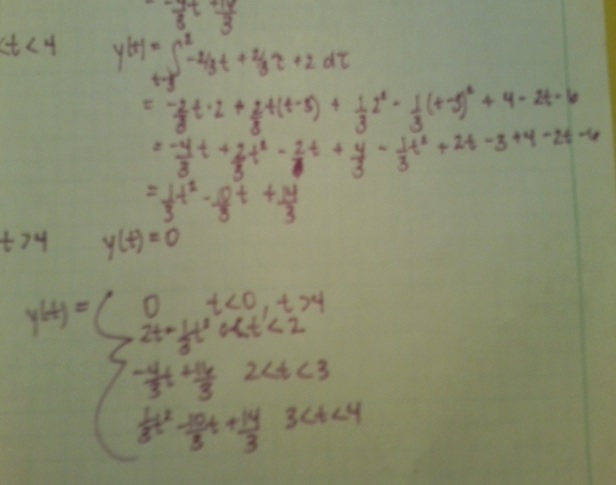 = -4/3 t + 16/3
<t<4 y(t) = ∫_{t-3}^{2} -2/3 t + 2/3 τ + 2 dτ
= -2/3 t·2 + 2/3 t(t-3) + 1/3 2² - 1/3 (t-3)² + 4 - 2t - 6
= -4/3 t + 2/3 t² - 2 t + 4/3 - 1/3 t² + 2t - 3 + 4 - 2t - 6
= 1/3 t² - 10/3 t + 14/3
t>4 y(t) = 0
y(t) = { 0 t<0, t>4
2t - 1/3 t² 0<t<2
-4/3 t + 16/3 2<t<3
1/3 t² - 10/3 t + 14/3 3<t<4